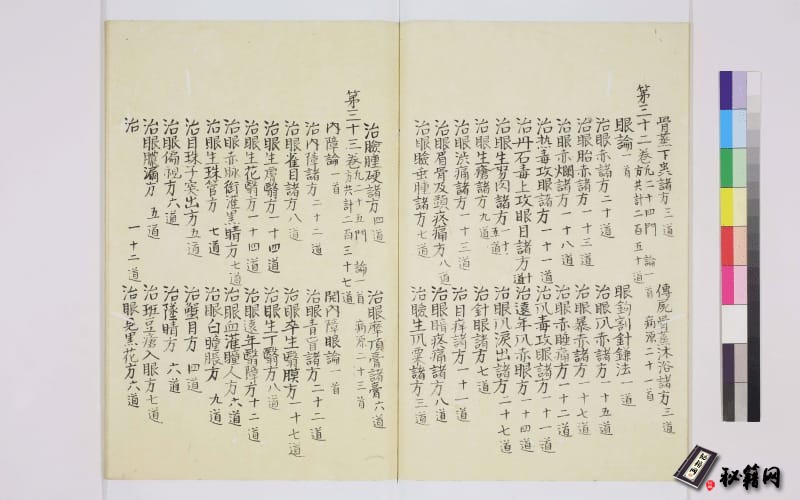 骨蒸下哭諸方三道 傳屍骨蒸沐浴諸方三道
第三十二卷 凡二十四門 論一首 病源二十一首 方共計二百五十道
眼論一首 眼鉤割針鎌法一道
治眼赤諸方二十道 治眼風赤諸方一十五道
治眼胎赤諸方一十三道 治眼暴赤諸方一十七道
治眼赤爛諸方一十八道 治眼赤腫痛方一十二道
治熱毒攻眼諸方一十一道 治風毒攻眼諸方一十一道
治丹石毒上攻眼目諸方 治遠年風赤眼方一十四道
治眼生努肉諸方一十五道 治眼風淚出諸方二十七道
治眼生瘡諸方九道 治針眼諸方七道
治眼澁痛諸方一十三道 治目痒諸方一十一道
治眼眉骨及頭疼痛方八道 治眼睛疼痛諸方八道
治眼瞼垂腫諸方七道 治瞼生風粟諸方三道
治瞼腫硬諸方四道 治眼摩頂膏諸膏六道
第三十三卷 凡二十五門 論一首 病源二十三首 方共計二百三十七道
內障論一首 開內障眼論一首
治內障諸方二十二道 治眼青盲諸方二十二道
治眼雀目諸方八道 治眼卒生翳膜方一十七道
治眼生花翳方一十四道 治眼生丁翳方八道
治眼生膚翳方一十四道 治眼遠年翳障方十二道
治眼赤脉衝灌黑睛方七道 治眼血灌瞳人方六道
治眼生珠管方七道 治眼白睛脹方九道
治目珠子突出方五道 治蟹目方四道
治眼偏視方六道 治墜睛方六道
治眼膿漏方五道 治斑豆瘡入眼方七道
治 一十二道 治眼見黑花方六道
秘籍网